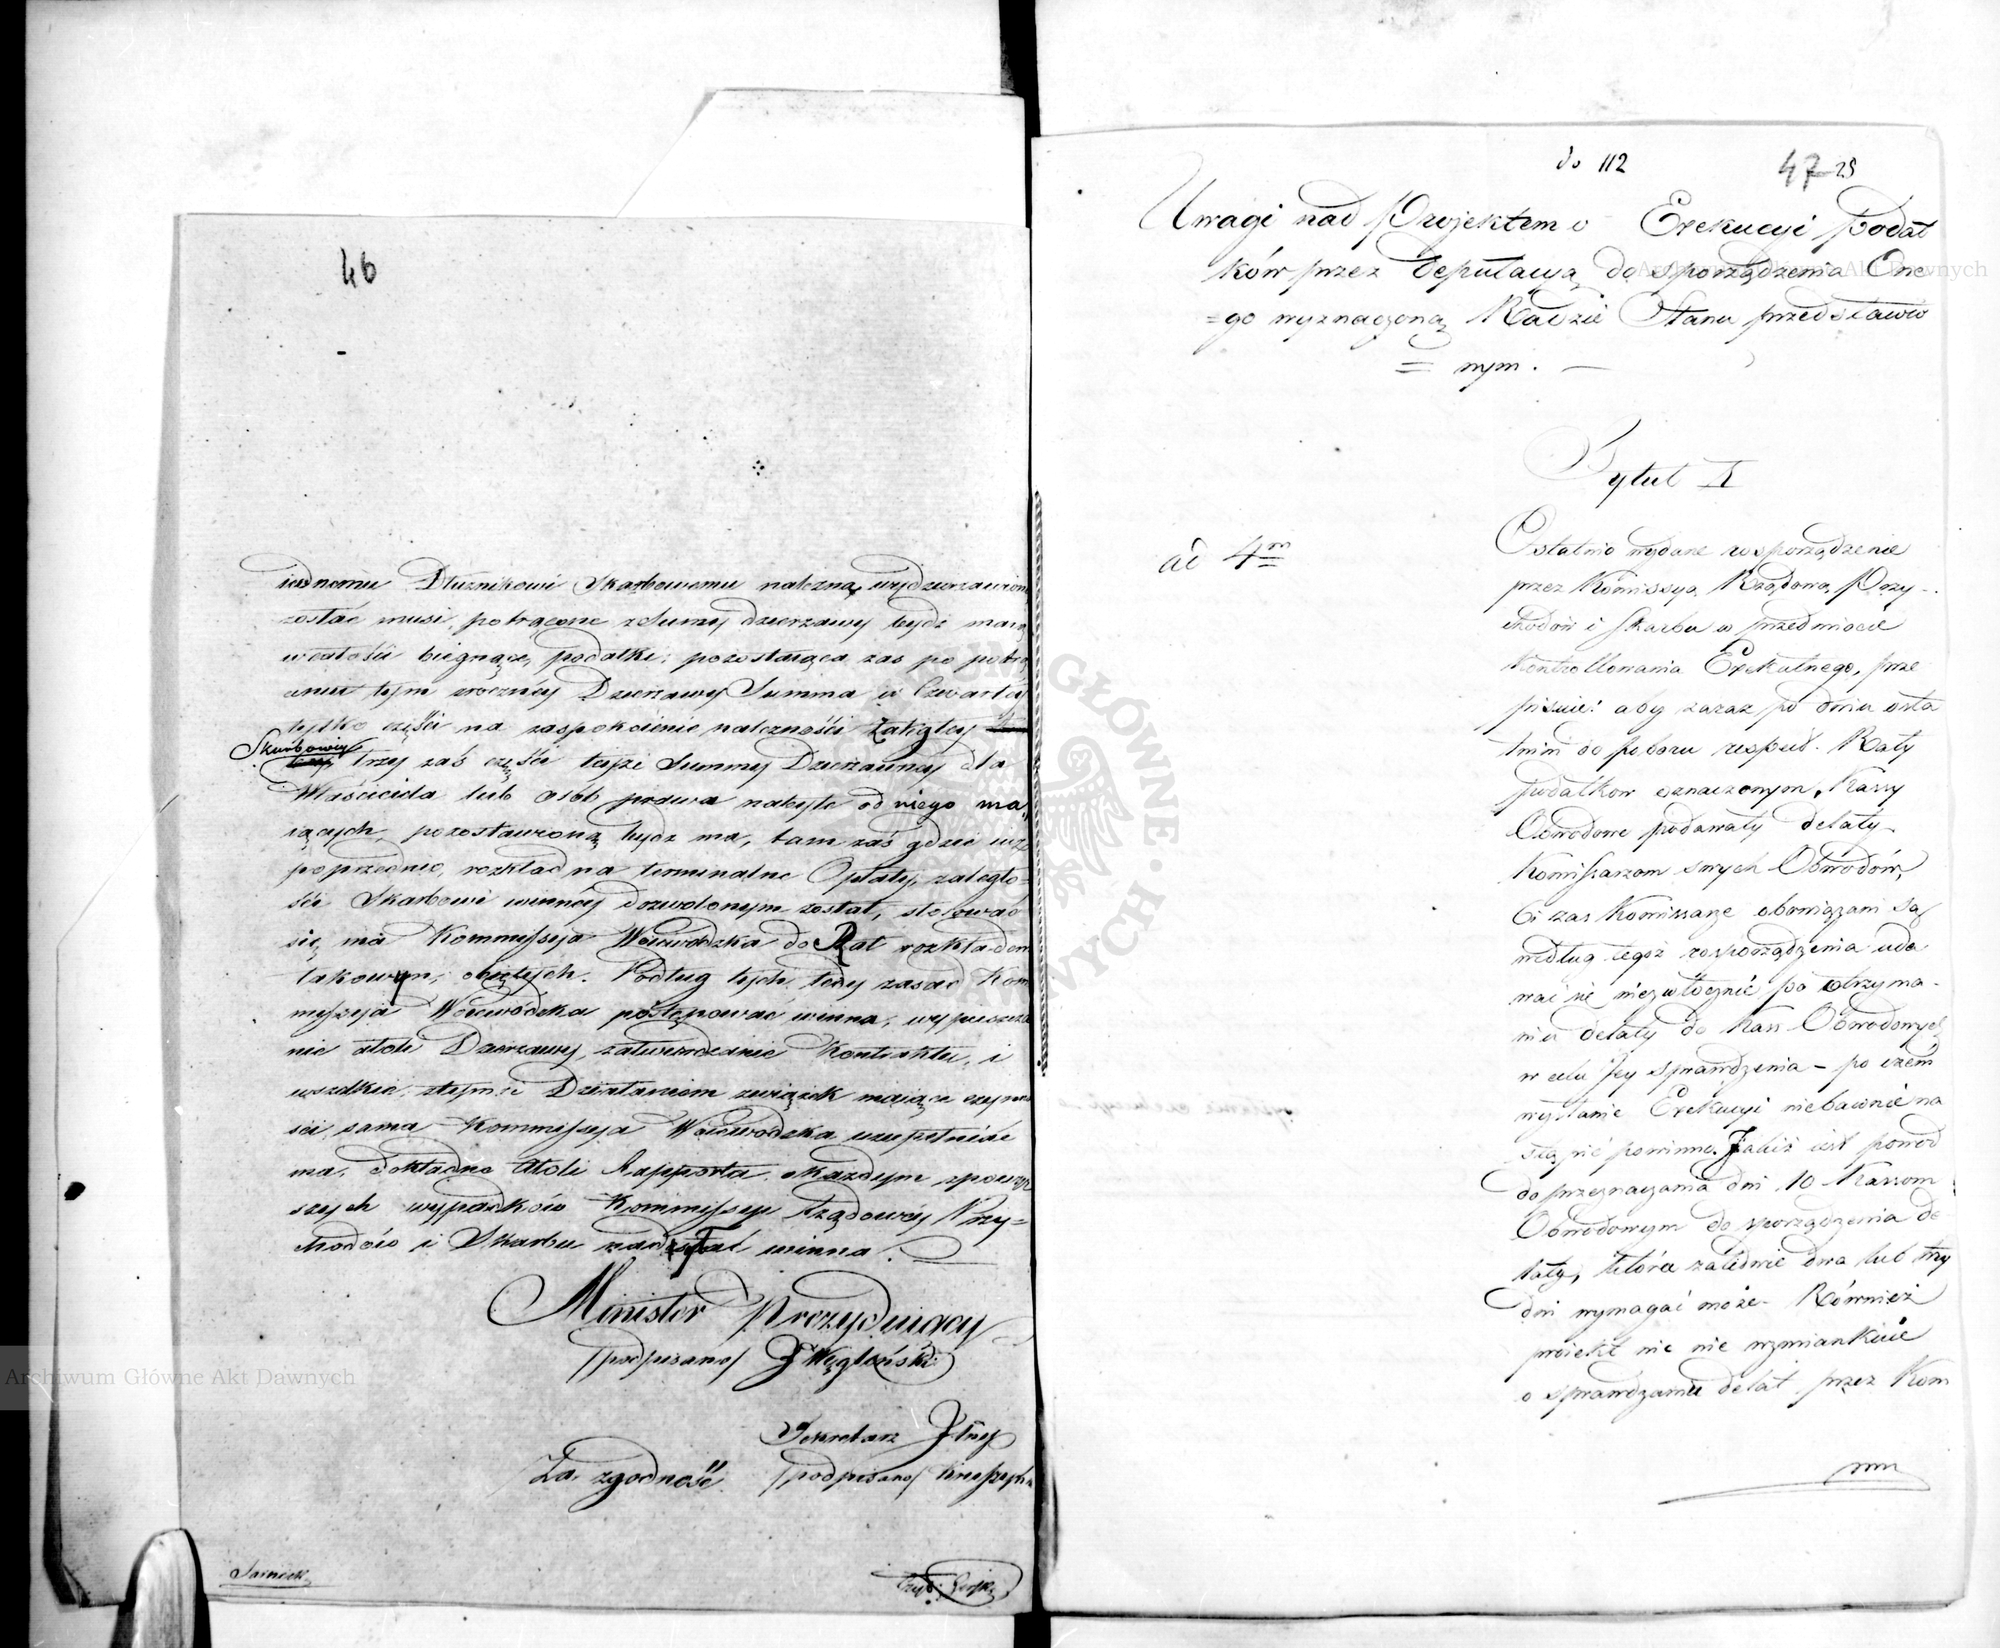 46
iednemu Dłużnikowi Skarbowemu należną, wydzierzawion
zostać musi, potrącone z Summy dzierzawy bydź maią
w całości biegnące podatki; pozostaiąca zas po potrą
ceniu tym roczney Dzierzawy Summa w Czwartey
tylko części na zaspokoienie należności Zaległey
Skarbowey trzy zaś części teyże Summy Dzierzawney dla
Właściciela lub osób prawa nabyte od niego ma
iących, pozostawioną bydź ma, tam zaś gdzie iuż
poprzednio rozkład na terminalne Opłaty zaległo-
ści Skarbowi winney dozwolonym został, stosować
się ma Kommissyia Woiewódzka do Rat rozkładem
takowym obiętych. Podług tych tedy zasad Kom
missyia Woiewódzka postępować winna, wypuszcze
nie atoli Dzierzawy, zatwierdzenie Kontraktu, i
wszelkie z tym Działaniem związek maiące czynno
ści sama Kommissyia Woiewódzka uzupełniać
ma, dokładne atoli Rapporta o każdym z powyż
szych wypadków Kommissyi Rządowey Przy=
chodów i Skarbu nadesłać winna.
Minister Prezyduiący
/podpisano/ J Węgleński
Sekretarz Jlny
Za zgodność /podpisano/
do 112
47 25
Uwagi nad Projektem o Exekucyi Podat
ków przez Deputacyą do sporządzenia One
=go wyznaczoną Radzie Stanu przedstawio
= nym. —
Tytuł I
ad 4m
Ostatnio wydane rosporządzenie
przez Kommissyą Rządową Przy-
chodów i Skarbu w przedmiocie
Kontrollowania Exekutnego, prze
pisuie: aby zaraz po dniu osta
tnim do poboru respect. Raty
podatkow oznaczonym, Kassy
Obwodowe podawały delaty
Kommissarzom swych Obwodów,
Ci zas Kommissarze obowiązani są
według tegoż rosporządzenia uda
wać się niezwłocznie po otrzyma-
niu delaty do Kass Obwodowych
w celu Jey sprawdzenia – po czem
wysłanie Exekucyi niebawnie na
stąpić powinno. Jakiż iest powod
do przeznaczania dni 10 Kassom
Obwodowym do sporządzenia de
laty, która zaledwie dwa lub trzy
dni wymagać może. Również
proiekt nic nie wzmiankuie
o sprawdzaniu delat przez Kom
Archiwum Główne Akt Dawnych
Archiwum Główne Akt Dawnych